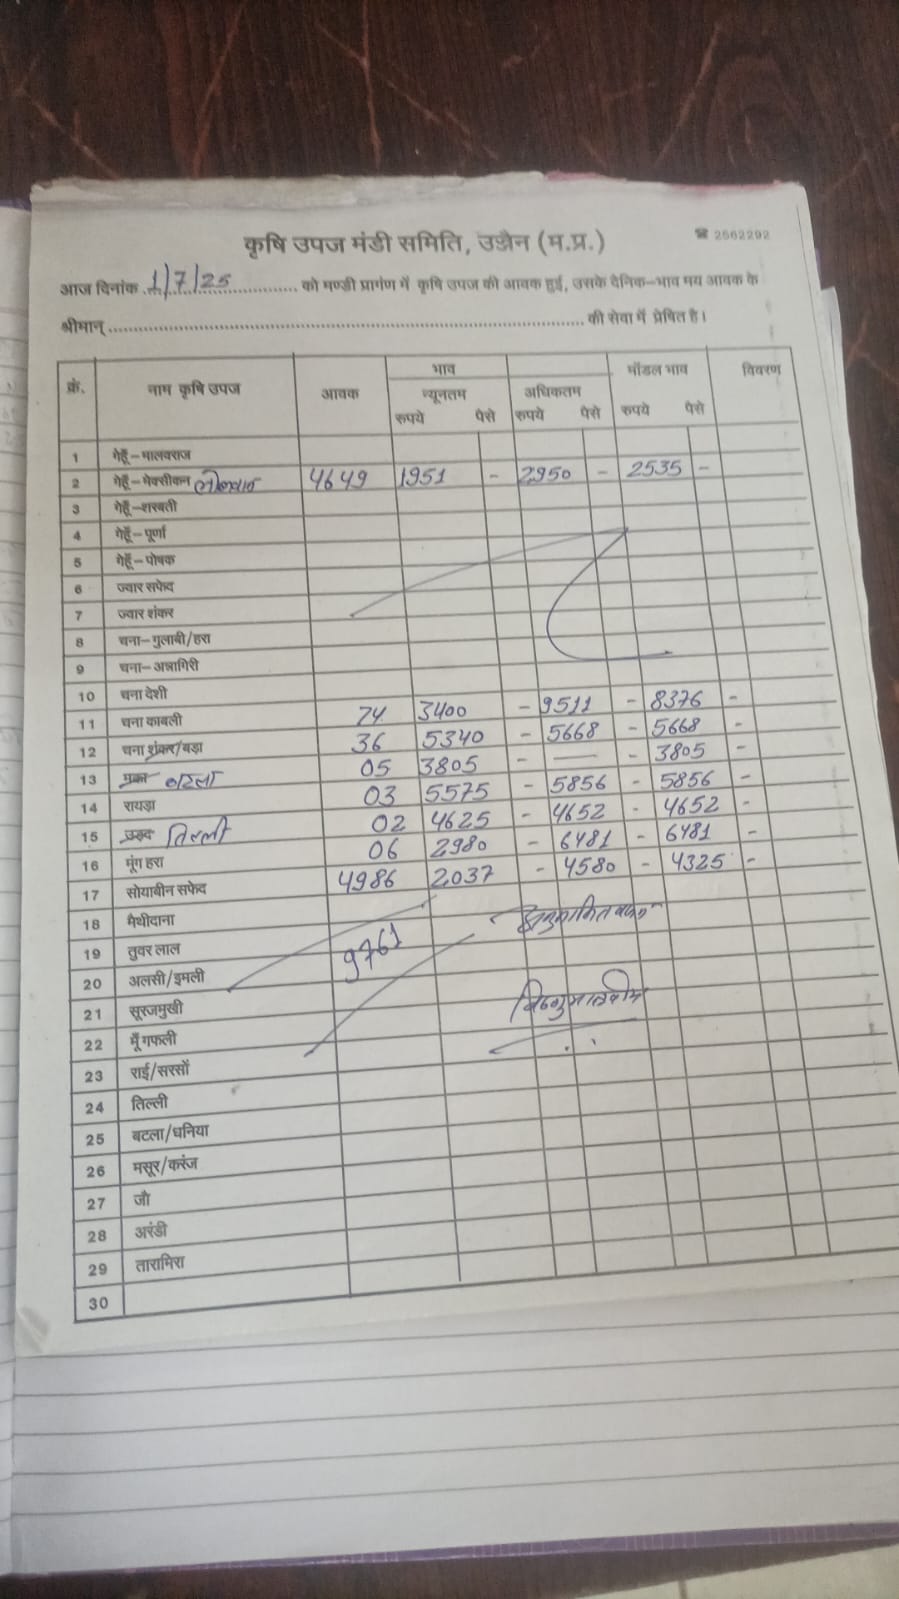 कृषि उपज मंडी समिति, उज्जैन (म.प्र.) ☎ 2562292
आज दिनांक 1/7/25 को मण्डी प्रागंण में कृषि उपज की आवक हुई, उसके दैनिक-भाव मय आवक के
श्रीमान् की सेवा में प्रेषित है।
क्रं. नाम कृषि उपज आवक भाव मॉडल भाव विवरण
न्यूनतम अधिकतम
रुपये पैसे रुपये पैसे रुपये पैसे
1 गेहूँ-मालवराज
2 गेहूँ-मेक्सीकन लोकवान 4649 1951 - 2950 - 2535 -
3 गेहूँ-शरबती
4 गेहूँ-पूर्णा
5 गेहूँ-पोषक
6 ज्वार सफेद
7 ज्वार शंकर
8 चना-गुलाबी/हरा
9 चना-अन्नागिरी
10 चना देशी
11 चना काबली 74 3400 - 9511 - 8376 -
12 चना शंकर/बड़ा 36 5340 - 5668 - 5668 -
13 मक्का बटला 05 3805 - — - 3805 -
14 रायड़ा 03 5575 - 5856 - 5856 -
15 उड़द तिल्ली 02 4625 - 4652 - 4652 -
16 मूंग हरा 06 2980 - 6481 - 6481 -
17 सोयाबीन सफेद 4986 2037 - 4580 - 4325 -
18 मैथीदाना
19 तुवर लाल 9761
20 अलसी/इमली
21 सूरजमुखी
22 मूँगफली
23 राई/सरसों
24 तिल्ली
25 बटला/धनिया
26 मसूर/करंज
27 जौ
28 अरंडी
29 तारामिरा
30